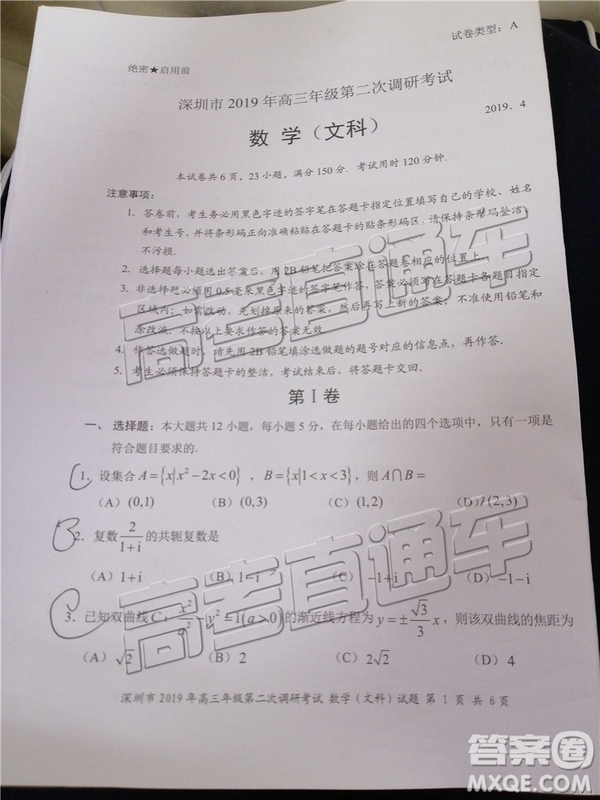 试卷类型：A
绝密★启用前
深圳市 2019 年高三年级第二次调研考试
数 学（文科）
2019．4
本试卷共 6 页，23 小题，满分 150 分．考试用时 120 分钟．
注意事项：
1．答卷前，考生务必用黑色字迹的签字笔在答题卡指定位置填写自己的学校、姓名
和考生号，并将条形码正向准确粘贴在答题卡的贴条形码区，请保持条形码整洁、
不污损．
2．选择题每小题选出答案后，用 2B 铅笔把答案涂在答题卡相应的位置上．
3．非选择题必须用 0.5 毫米黑色字迹的签字笔作答，答案必须写在答题卡各题目指定
区域内；如需改动，先划掉原来的答案，然后再写上新的答案；不准使用铅笔和
涂改液．不按以上要求作答的答案无效．
4．作答选做题时，请先用 2B 铅笔填涂选做题的题号对应的信息点，再作答．
5．考生必须保持答题卡的整洁，考试结束后，将答题卡交回．
第 I 卷
一、 选择题：本大题共 12 小题，每小题 5 分，在每小题给出的四个选项中，只有一项是
符合题目要求的．
1．设集合 A={x|x²−2x<0} ，B={x|1<x<3}，则 A∩B=
（A）(0,1) （B）(0,3) （C）(1,2) （D）(2,3)
2．复数 2/(1+i) 的共轭复数是
（A）1+i （B）1−i （C）−1+i （D）−1−i
3．已知双曲线 C：x²/a²−y²=1(a>0)的渐近线方程为 y=±√3/3 x，则该双曲线的焦距为
（A）√2 （B）2 （C）2√2 （D）4
深圳市 2019 年高三年级第二次调研考试 数学（文科）试题 第 1 页 共 6 页
高考直通车
高考直通车
答案圈
MXQE.COM